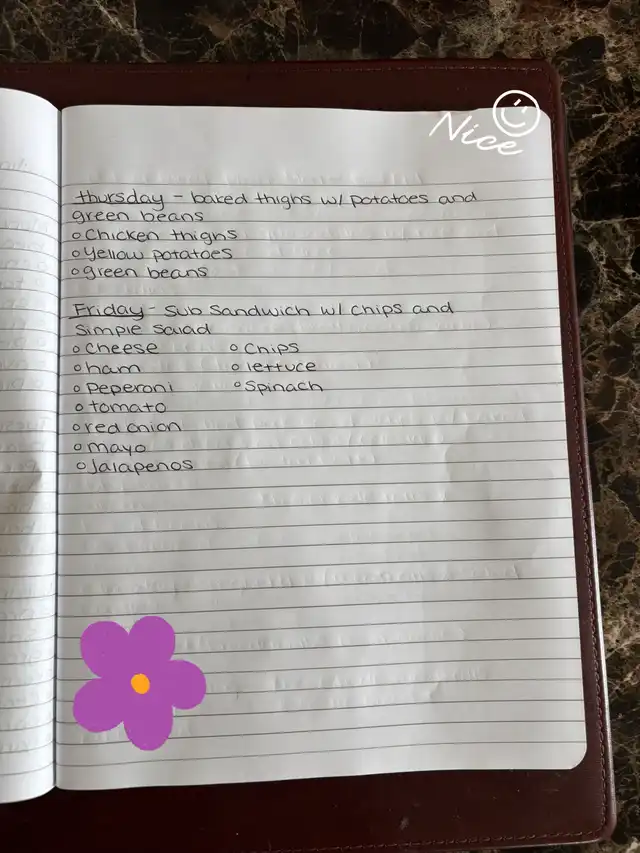 Nice
thursday - baked thighs w/ potatoes and
green beans
○ Chicken thighs
○ Yellow potatoes
○ green beans
Friday - Sub Sandwich w/ Chips and
Simple Salad
○ Cheese
○ ham
○ Peperoni
○ tomato
○ red onion
○ mayo
○ Jalapenos
○ Chips
○ lettuce
○ Spinach